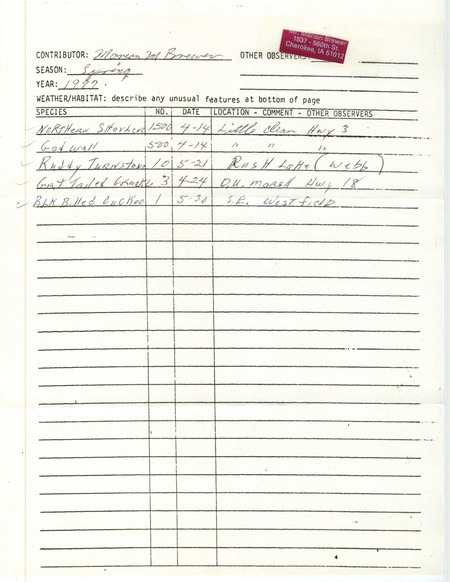 Mr. Marion Brewer
1537 - 560th St.
Cherokee, IA 51012
CONTRIBUTOR: Marion M Brewer OTHER OBSERVERS:
SEASON: Spring
YEAR: 1997
WEATHER/HABITAT: describe any unusual features at bottom of page
SPECIES NO. DATE LOCATION - COMMENT - OTHER OBSERVERS
Northern Shoveler 1500 4-14 Little Clear Hwy 3
Gadwall 500 4-14 " " "
Ruddy Turnstone 10 5-21 Rush Lake (Webb)
Grat Tailed Grackle 3 4-24 D.U. Marsh Hwy 18
Blk Billed Cuckoo 1 5-30 S.E. Westfield